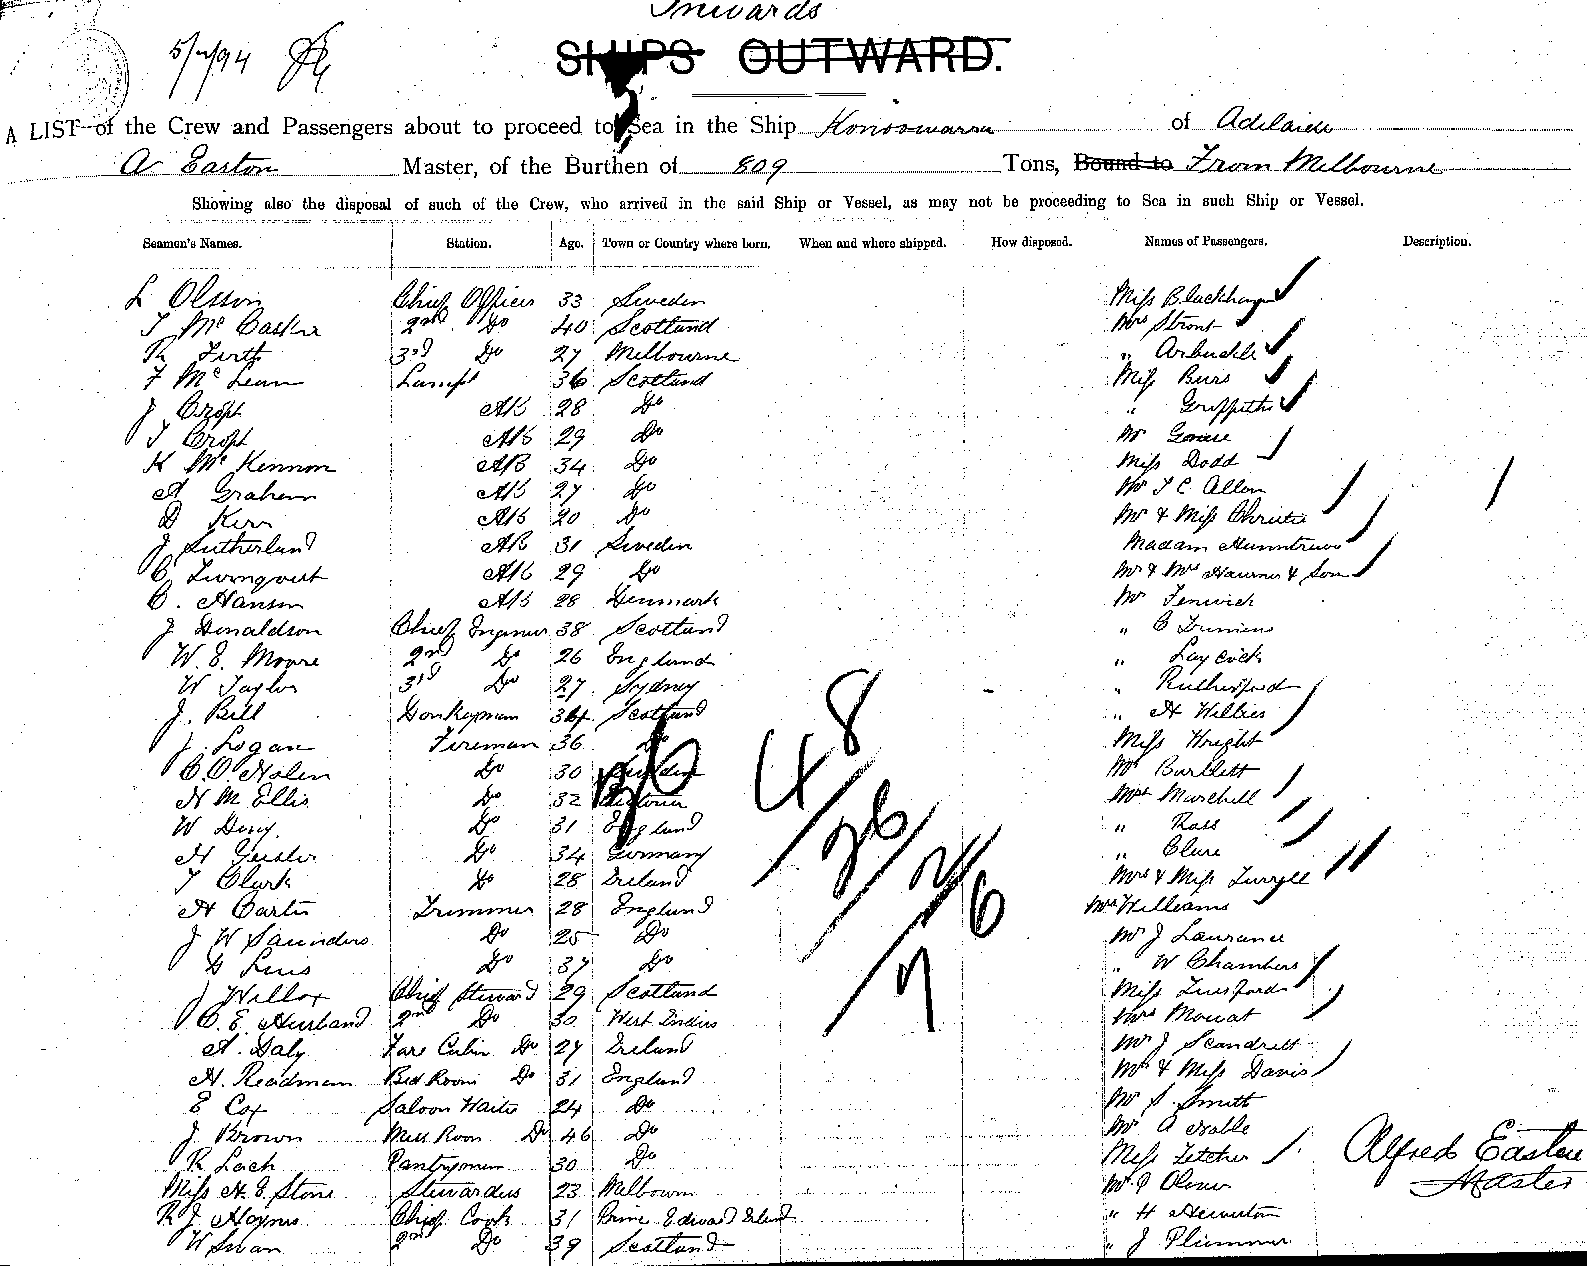 Inwards
5/7/94
SHIPS OUTWARD.
A LIST of the Crew and Passengers about to proceed to Sea in the Ship Konoowarra of Adelaide
A Easton Master, of the Burthen of 809 Tons, Bound to From Melbourne
Showing also the disposal of such of the Crew, who arrived in the said Ship or Vessel, as may not be proceeding to Sea in such Ship or Vessel.
Seamen's Names. Station. Age. Town or Country where born. When and where shipped. How disposed. Names of Passengers. Description.
L Olsson Chief Officer 33 Sweden Miss
T Mc Caskie 2nd Do 40 Scotland Mrs
R Firth 3rd Do 27 Melbourne " Arbuckle
F Mc Lean Lamps 36 Scotland Miss
J Croft AB 28 Do " Griffiths
T Croft AB 29 Do Mr
K Mc Kennon AB 34 Do Miss Dodd
A Graham AB 27 Do Mr T C Allen
D Kerr AB 20 Do Mr & Miss Christie
J Sutherland AB 31 Sweden Madam
C AB 29 Do Mr & Mrs & Son
C. Hansen AB 28 Denmark Mr Fenwick
J Donaldson Chief Engineer 38 Scotland " C
W. E. Moore 2nd Do 26 England " Laycock
W Taylor 3rd Do 27 Sydney " Rutherford
J. Bell Donkeyman 34 Scotland " H Willies
J. Logan Fireman 36 Do Miss Wright
C. O. Nolen Do 30 Sweden Mr Bartlett
N M Ellis Do 32 Victoria Mrs Marshall
W Do 31 England " Ross
H Geisler Do 34 Germany " Clure
T Clark Do 28 Ireland Mrs & Miss Turrell
H Carter Trimmer 28 England Mrs Williams
J W Saunders Do 25 Do Mr J Laurance
Do 37 Do " W Chambers
J Willox Chief Steward 29 Scotland Miss
C. E. Husband 2nd Do 30 West Indies Mrs Mowat
A. Daly Fore Cabin Do 27 Ireland Mr J Scandrett
H. Readman Bed Room Do 31 England Mrs & Miss Davis
E Cox Saloon Waiter 24 Do Mr S. Smith
J. Brown Mess Room Do 46 Do Mr A Noble
R Loch Pantryman 30 Do Miss Fetcher
Alfred Easton
Master
Miss H. E. Stone Stewardess 23 Melbourn Mr
R J Haynes Chief Cook 31 Prince Edward Island " H
W Swan 2nd Do 39 Scotland " J Plummer
48
/26/21/6
/7